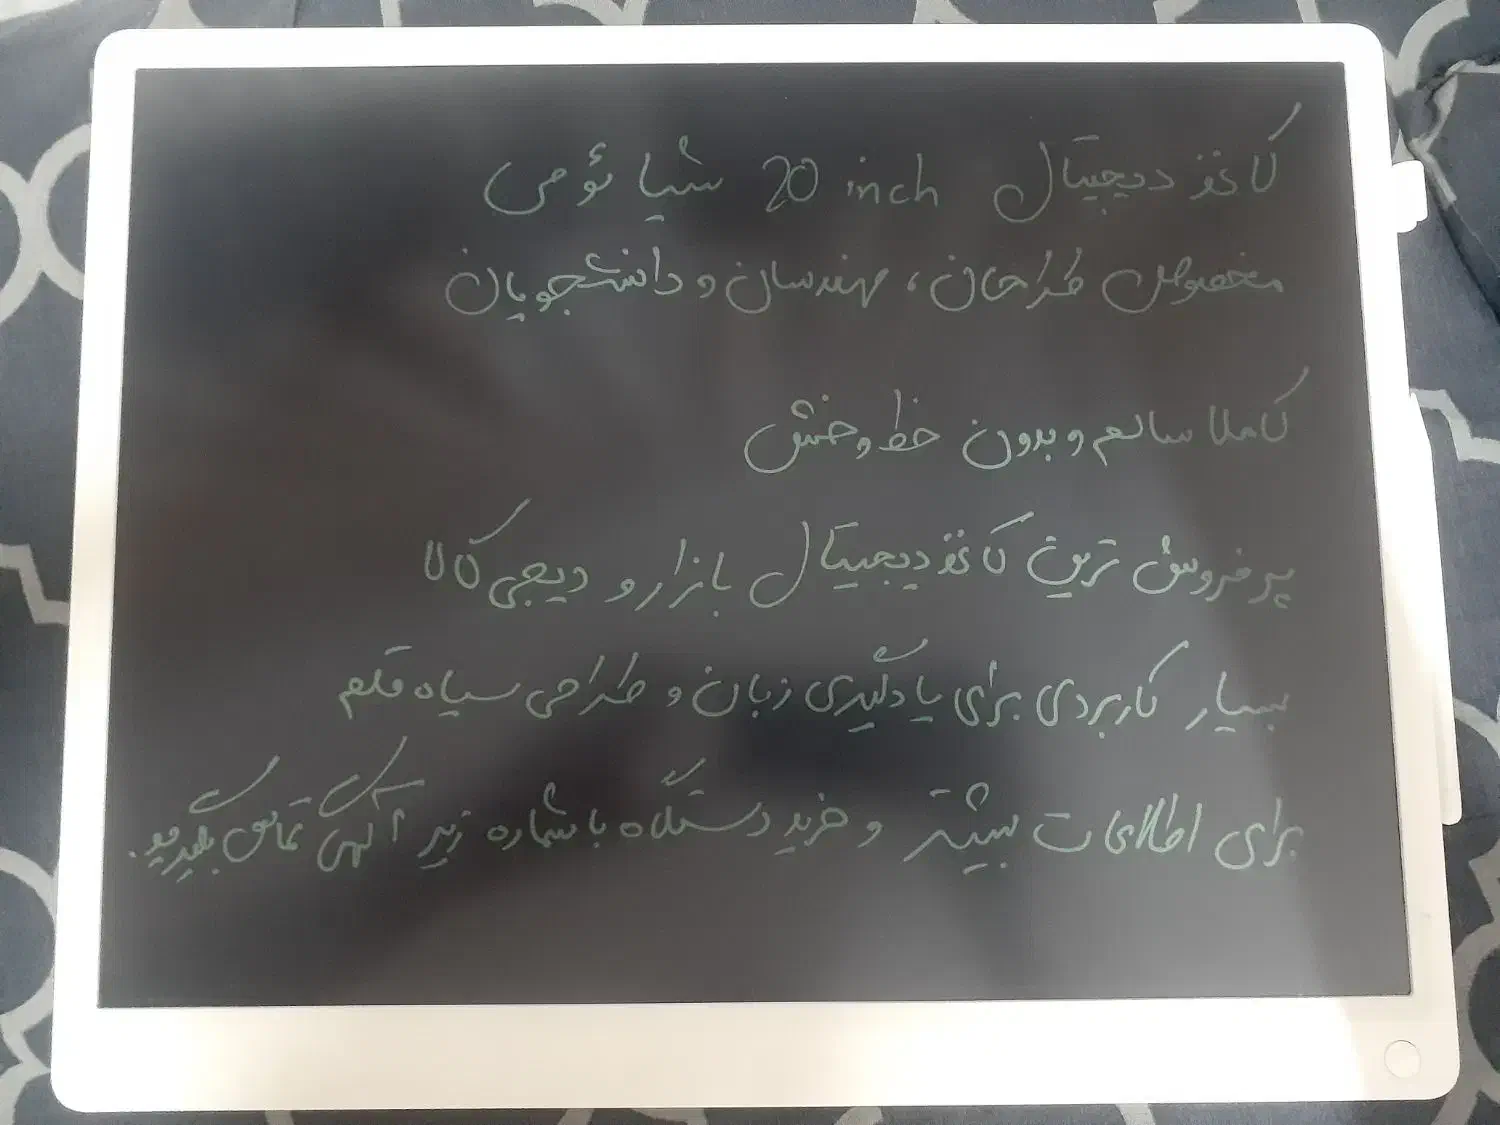 کاغذ دیجیتال 20 inch شیائومی
مخصوص طراحان، مهندسان و دانشجویان
کاملا سالم و بدون خط و خش
پرفروش ترین کاغذ دیجیتال بازار و دیجی کالا
بسیار کاربردی برای یادگیری زبان و طراحی سیاه قلم
برای اطلاعات بیشتر و خرید دستگاه با شماره زیر آگهی تماس بگیرید.